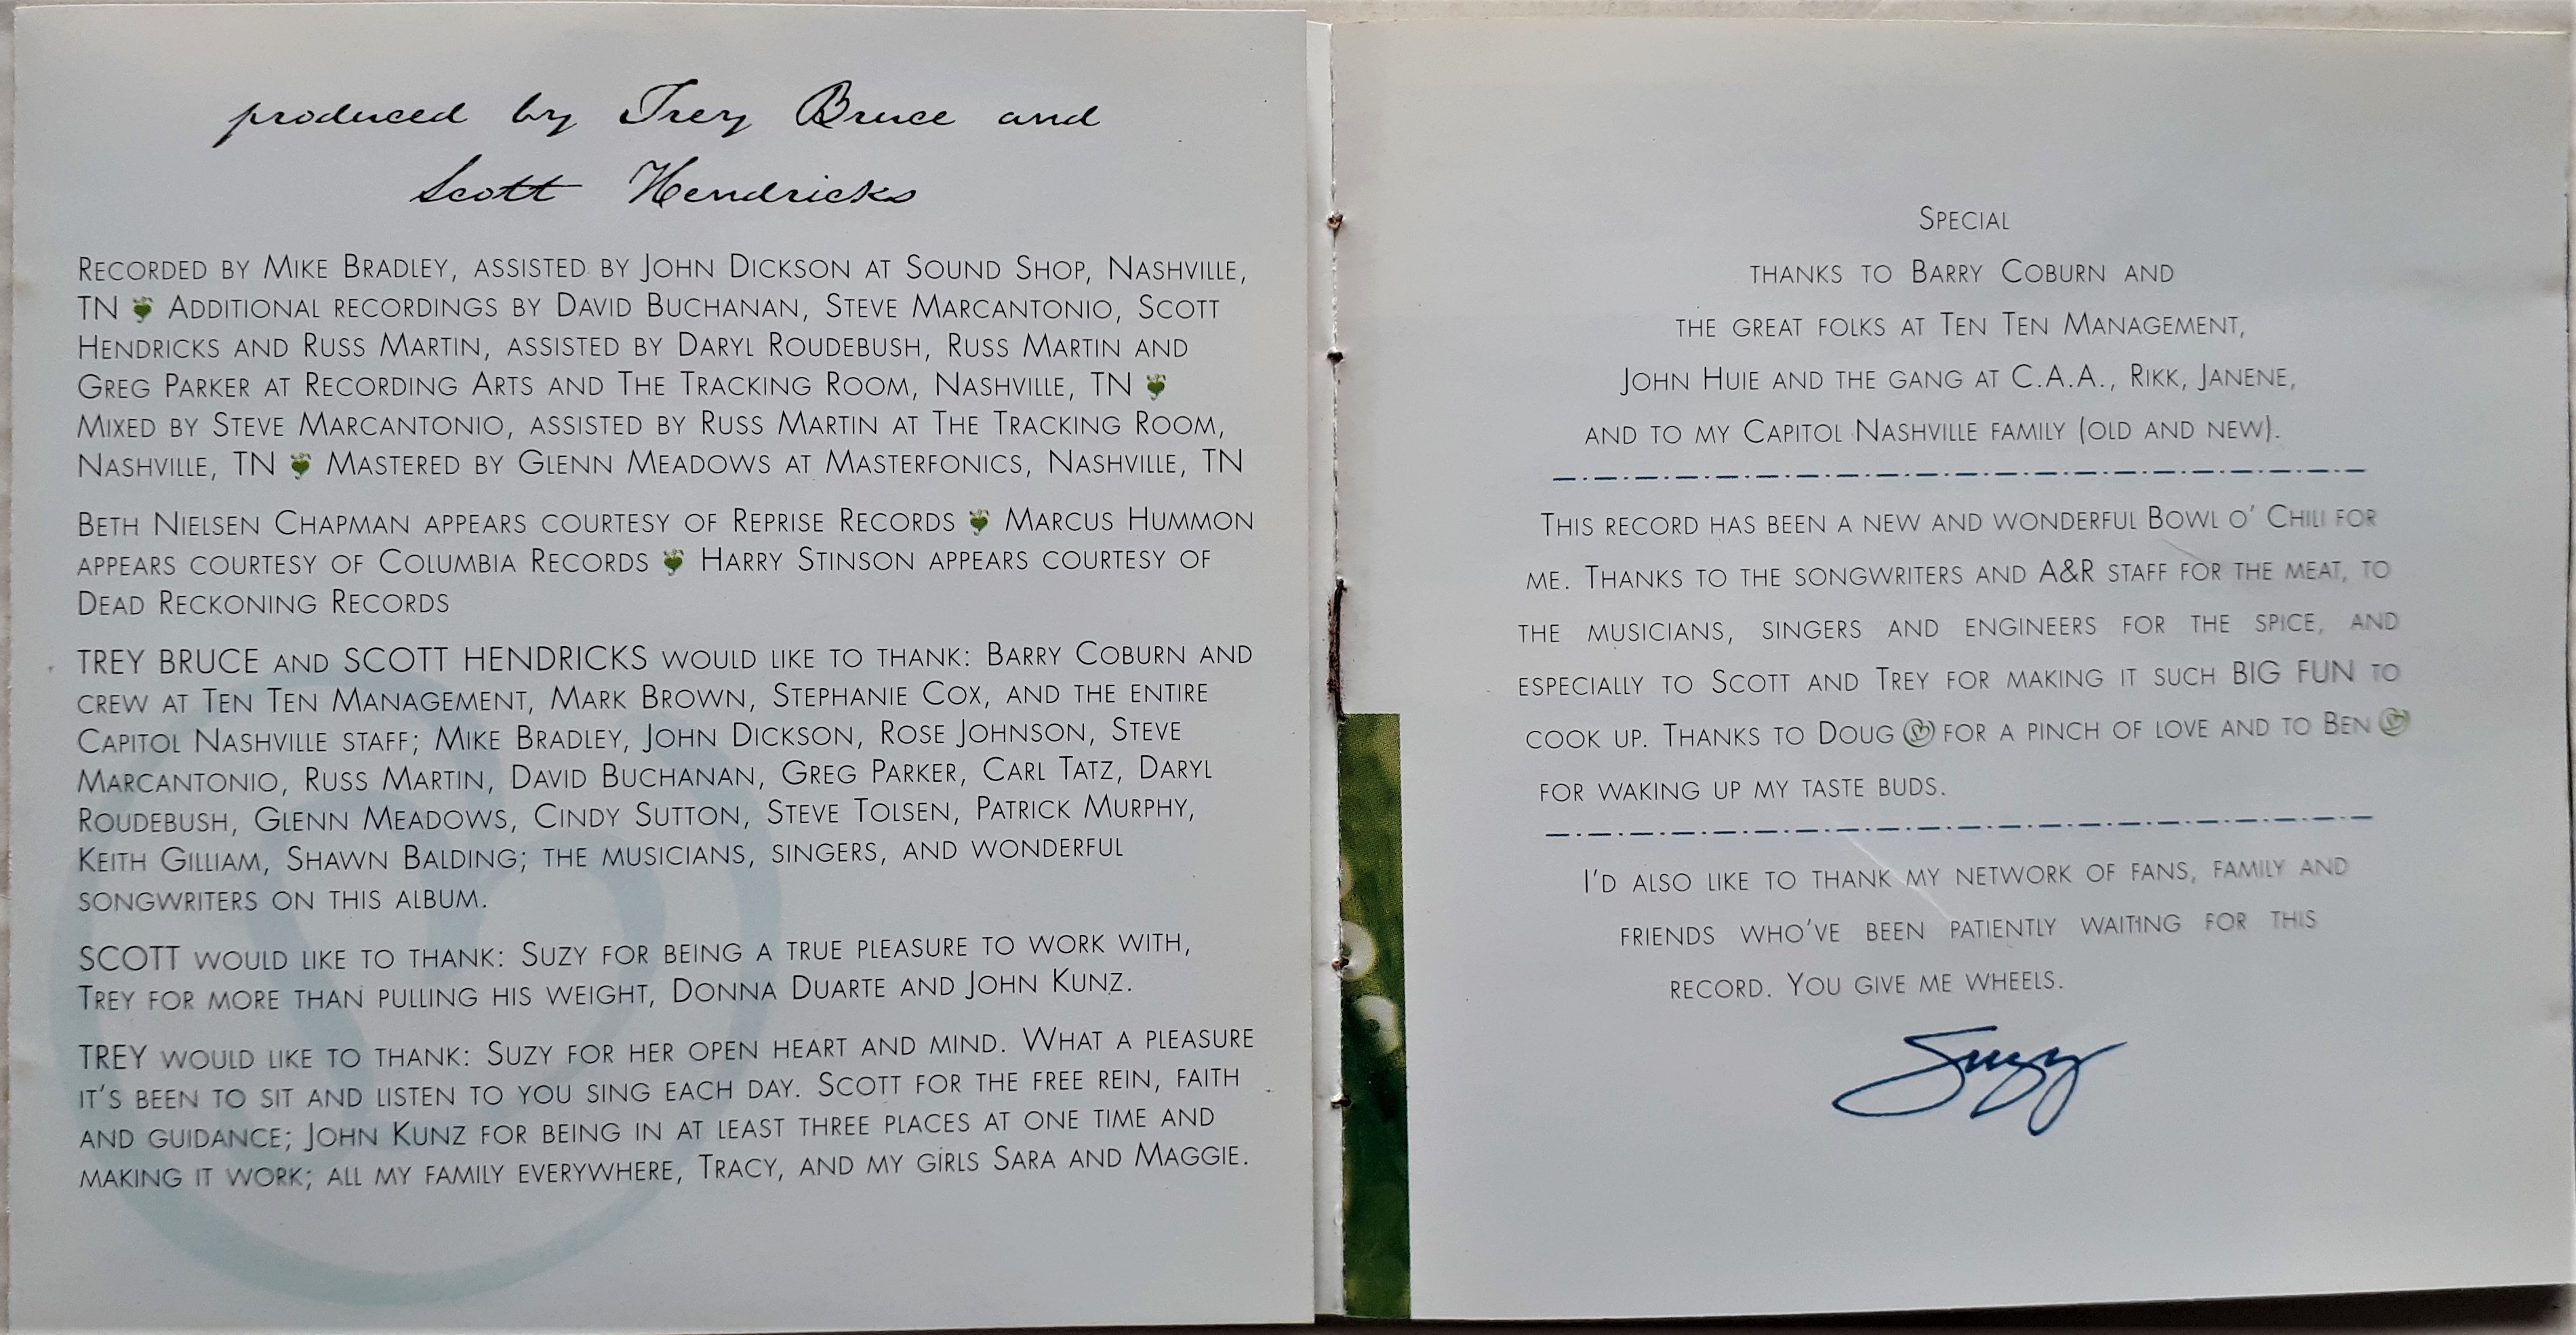 produced by Trey Bruce and
Scott Hendricks
Recorded by Mike Bradley, assisted by John Dickson at Sound Shop, Nashville,
TN Additional recordings by David Buchanan, Steve Marcantonio, Scott
Hendricks and Russ Martin, assisted by Daryl Roudebush, Russ Martin and
Greg Parker at Recording Arts and The Tracking Room, Nashville, TN
Mixed by Steve Marcantonio, assisted by Russ Martin at The Tracking Room,
Nashville, TN Mastered by Glenn Meadows at Masterfonics, Nashville, TN
Beth Nielsen Chapman appears courtesy of Reprise Records Marcus Hummon
appears courtesy of Columbia Records Harry Stinson appears courtesy of
Dead Reckoning Records
TREY BRUCE and SCOTT HENDRICKS would like to thank: Barry Coburn and
crew at Ten Ten Management, Mark Brown, Stephanie Cox, and the entire
Capitol Nashville staff; Mike Bradley, John Dickson, Rose Johnson, Steve
Marcantonio, Russ Martin, David Buchanan, Greg Parker, Carl Tatz, Daryl
Roudebush, Glenn Meadows, Cindy Sutton, Steve Tolsen, Patrick Murphy,
Keith Gilliam, Shawn Balding; the musicians, singers, and wonderful
songwriters on this album.
SCOTT would like to thank: Suzy for being a true pleasure to work with,
Trey for more than pulling his weight, Donna Duarte and John Kunz.
TREY would like to thank: Suzy for her open heart and mind. What a pleasure
it's been to sit and listen to you sing each day. Scott for the free rein, faith
and guidance; John Kunz for being in at least three places at one time and
making it work; all my family everywhere, Tracy, and my girls Sara and Maggie.
Special
thanks to Barry Coburn and
the great folks at Ten Ten Management,
John Huie and the gang at C.A.A., Rikk, Janene,
and to my Capitol Nashville family (old and new).
This record has been a new and wonderful Bowl o' Chili for
me. Thanks to the songwriters and A&R staff for the meat, to
the musicians, singers and engineers for the spice, and
especially to Scott and Trey for making it such BIG FUN to
cook up. Thanks to Doug for a pinch of love and to Ben
for waking up my taste buds.
I'd also like to thank my network of fans, family and
friends who've been patiently waiting for this
record. You give me wheels.
Suzy